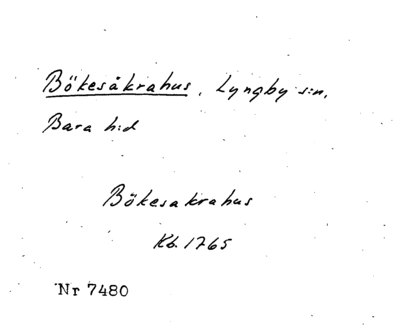 Bökesåkrahus, Lyngby s:n,
Bara h:d
Bökesakrahus
Kb. 1765
Nr 7480